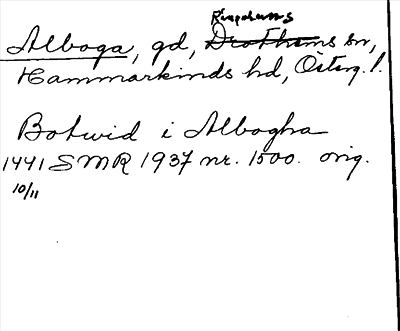 Ringarums
Alboga, gd, Drothems sn,
Hammarkinds hd, Österg. l.
Botwid i Albogha
1441 SMR 1937 nr. 1500. orig.
10/11